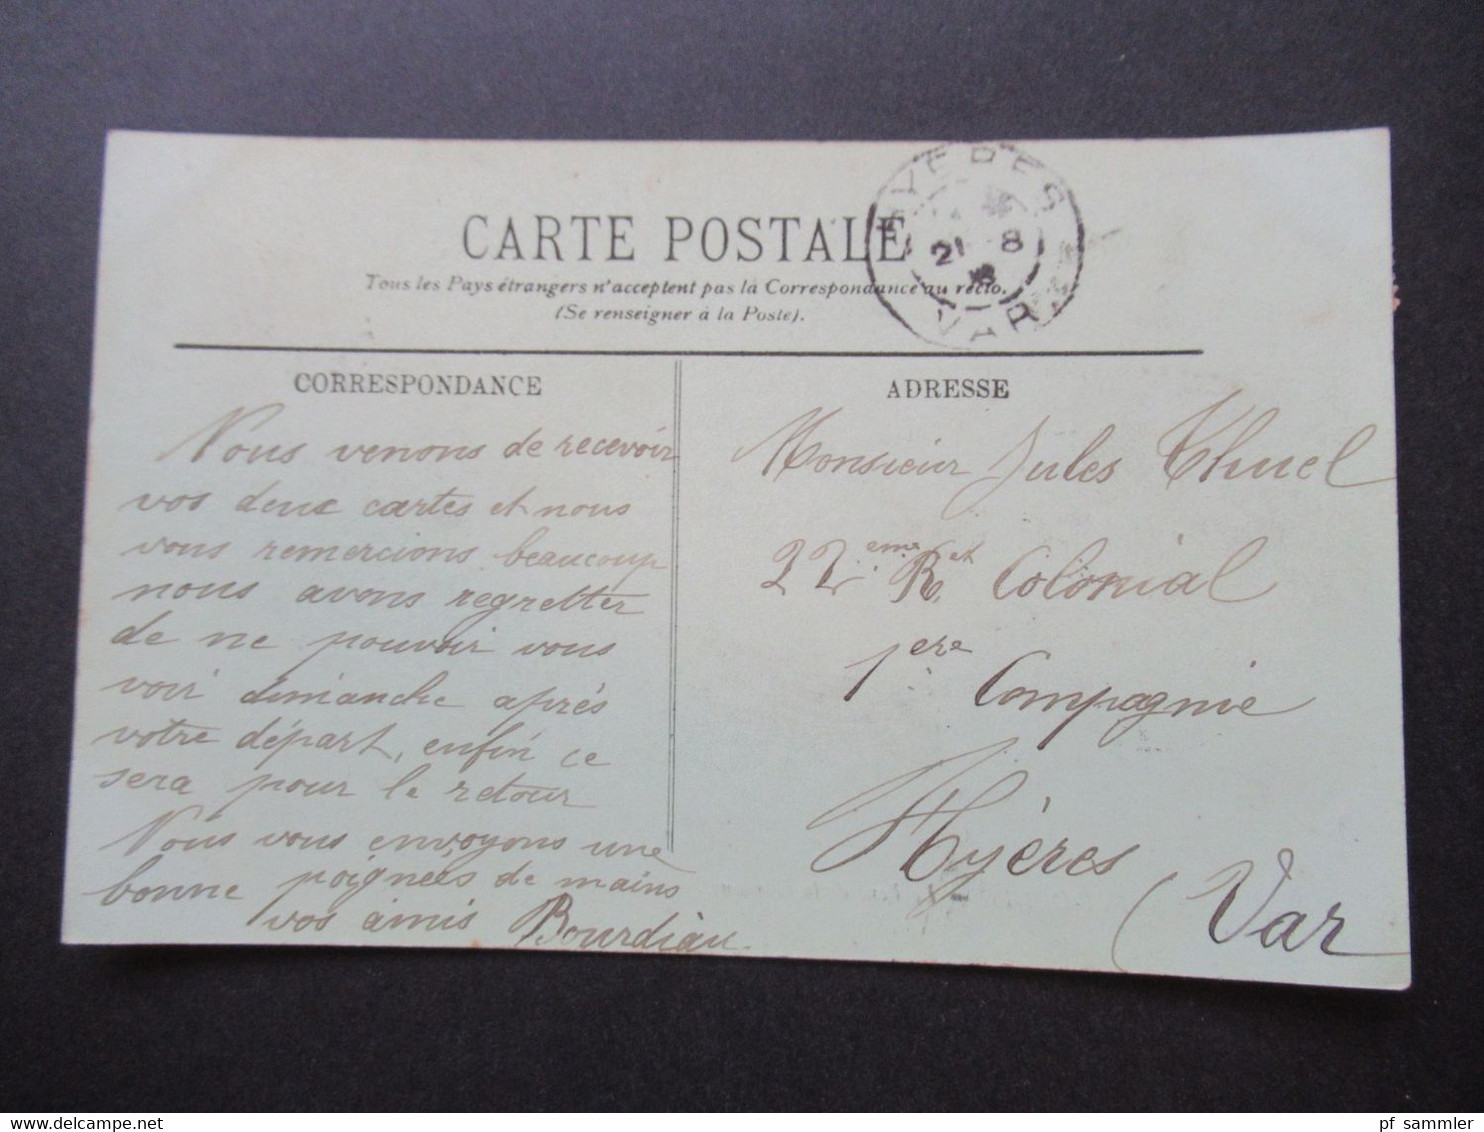 CARTE POSTALE
Tous les Pays étrangers n'acceptent pas la Correspondance au recto.
(Se renseigner à la Poste).
HYERES
21 8
VAR
CORRESPONDANCE
Nous venons de recevoir
vos deux cartes et nous
vous remercions beaucoup
nous avons regretter
de ne pouvoir vous
voir dimanche après
votre départ, enfin ce
sera pour le retour
Nous vous envoyons une
bonne poignées de mains
vos amis Bourdiau
ADRESSE
Monsieur Jules Thuel
22eme Rt Colonial
1ere Compagnie
Hyères
(Var
www.delcampe.net
pf_sammler